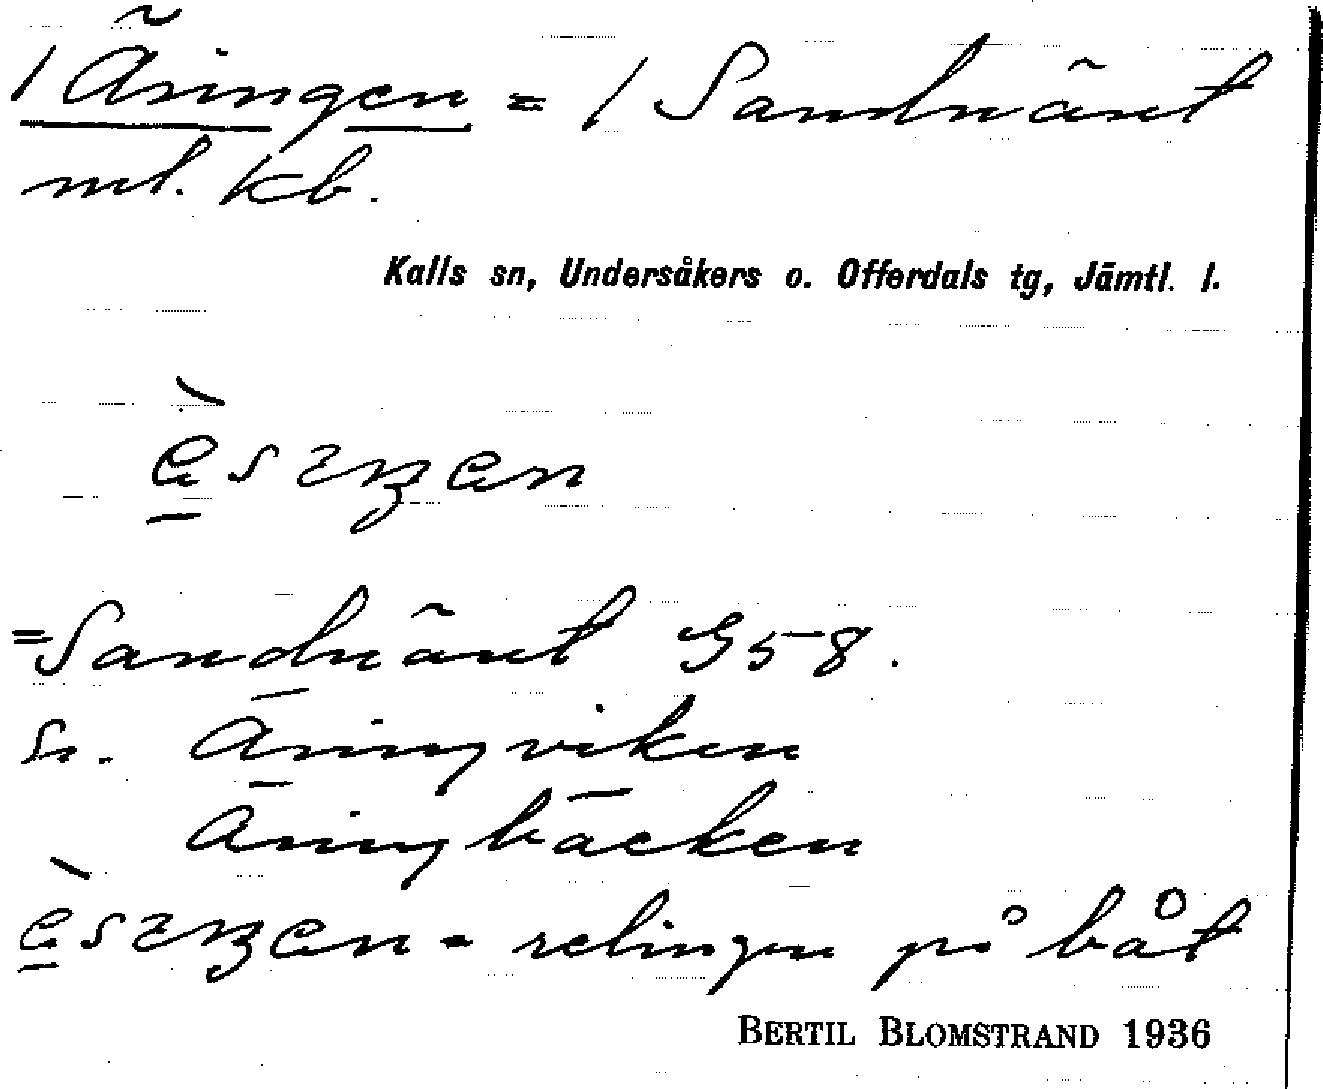 / Äringen = / Sandnäset
ml. kb.
Kalls sn, Undersåkers o. Offerdals tg, Jämtl. l.
= Sandnäset G58.
Sn. Äringviken
Äringbäcken
= relingen på båt
BERTIL BLOMSTRAND 1936